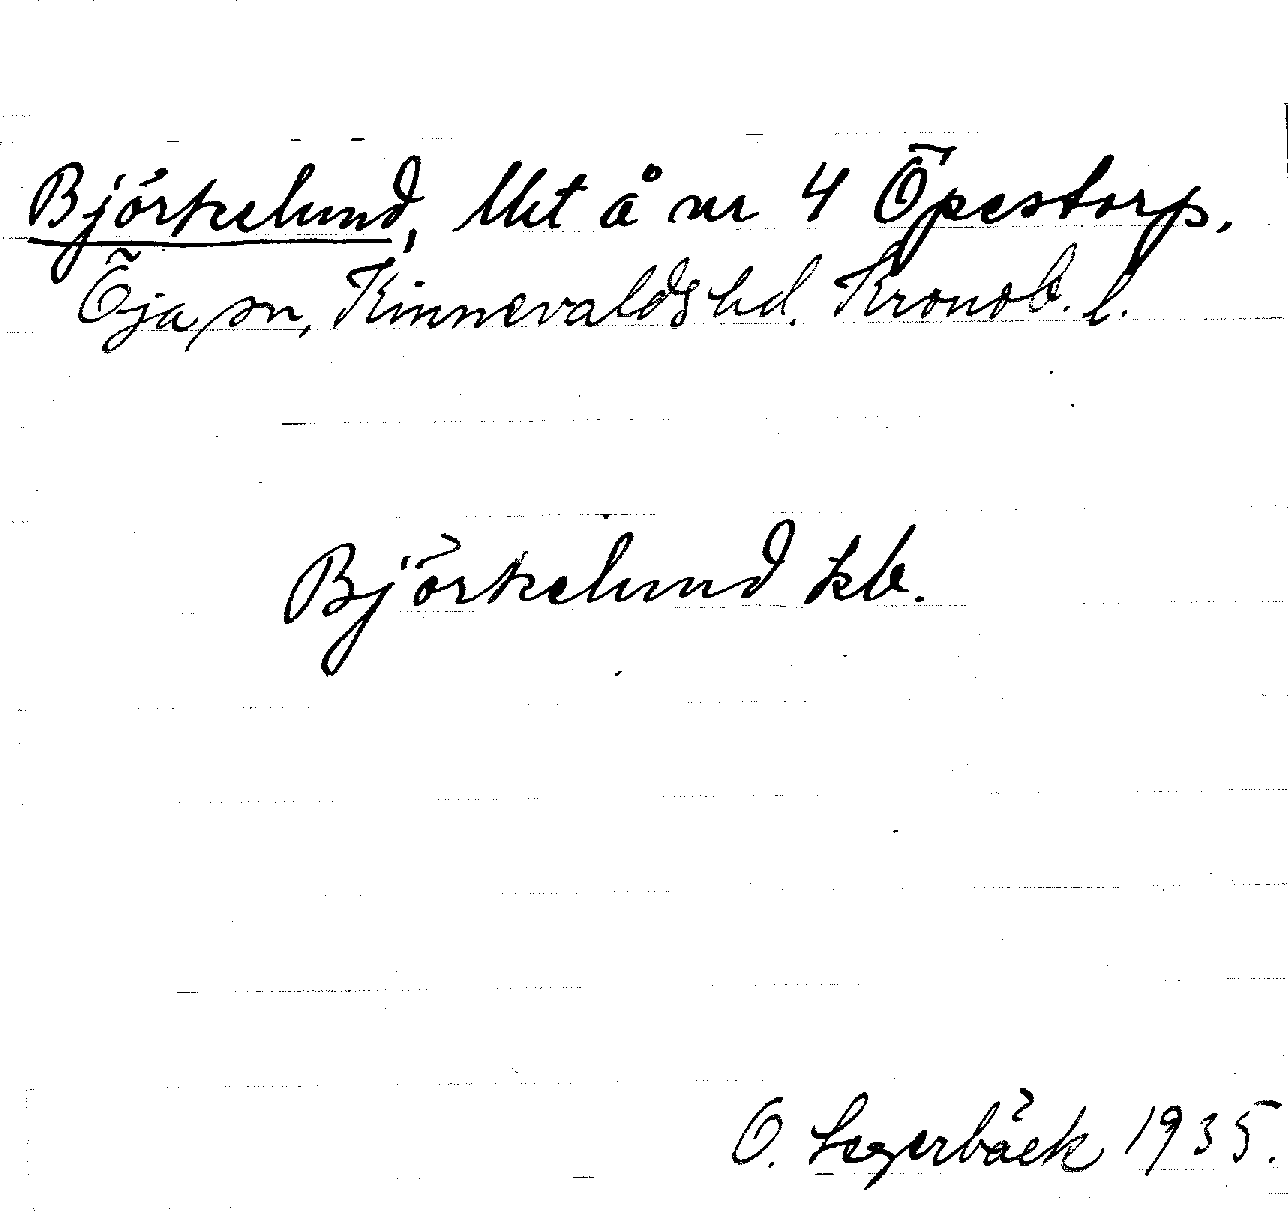 Björkelund, Uht å nr 4 Öpestorp.
Öja sn, Kinnevalds hd. Kronob. l.
Björkelund kb.
O. Lagerbäck 1935.